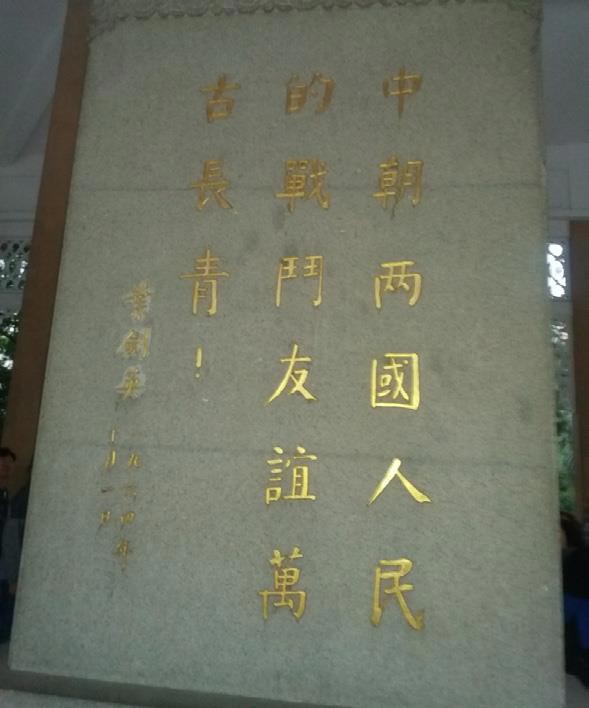 中朝两國人民
的戰鬥友誼萬
古長青！
葉劍英
一九六四年
十月一日